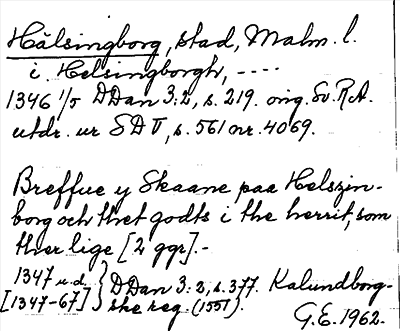 Hälsingborg, stad, Malm. l.
i. Helsingborgh, ----
1346 1/5 DDan 3:2, s. 219. orig. Sv. R.A.
utdr. ur SD V, s. 561 nr. 4069.
Breffue y Skaane paa Helszin-
borg och thet godts i the herrit, som
ther lige [2 ggr].-
1347 u.d. } DDan 3:2, s. 377. Kalundborg-
[1347-67] ske reg. (1551).
G.E. 1962.